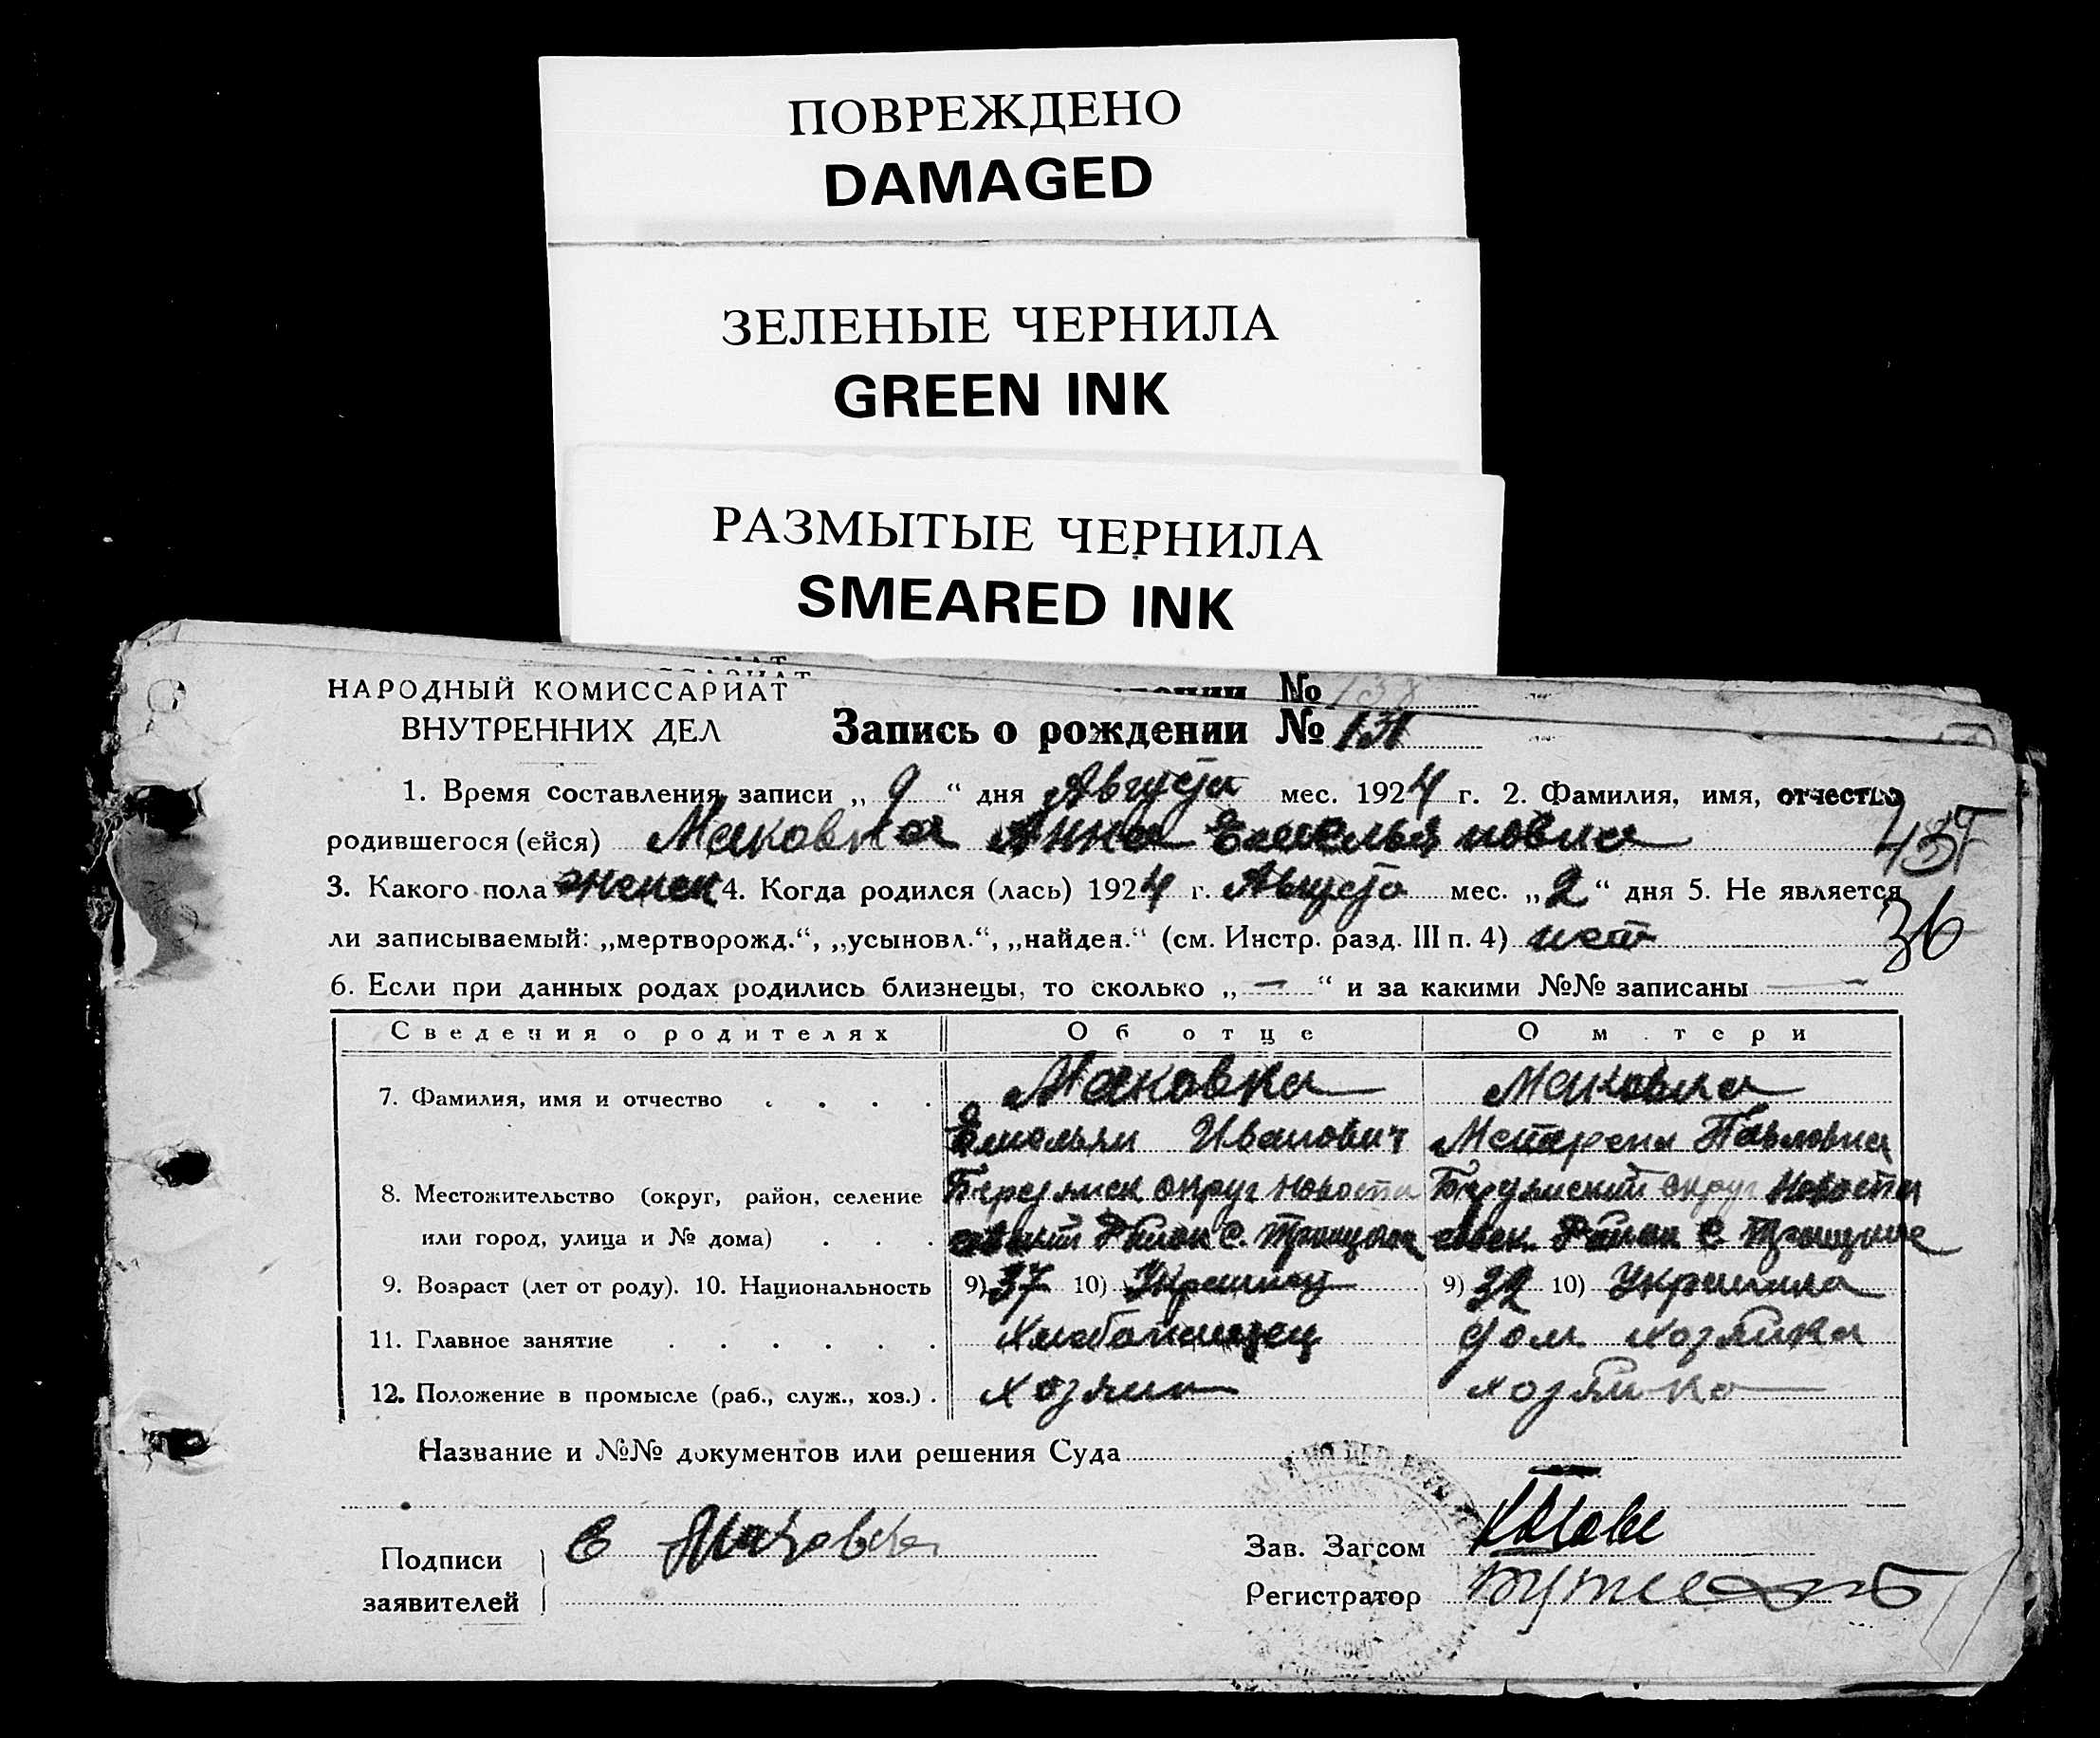 ПОВРЕЖДЕНО
DAMAGED
ЗЕЛЕНЫЕ ЧЕРНИЛА
GREEN INK
РАЗМЫТЫЕ ЧЕРНИЛА
SMEARED INK
НАРОДНЫЙ КОМИССАРИАТ
ВНУТРЕННИХ ДЕЛ
Запись о рождении № 131
1. Время составления записи „ 9 “ дня Августа мес. 1924 г. 2. Фамилия, имя, отчество
родившегося (ейся) Маковка Анна Емельяновна
3. Какого пола женск 4. Когда родился (лась) 1924 г. Августа мес. „ 2 “ дня 5. Не является
ли записываемый: „мертворожд.“, „усыновл.“, „найден.“ (см. Инстр. разд. III п. 4) нет
36
6. Если при данных родах родились близнецы, то сколько „ — “ и за какими №№ записаны —
Сведения о родителях Об отце О м тери
7. Фамилия, имя и отчество . . . . Маковка Маковка
Емельян Иванович Павловна
8. Местожительство (округ, район, селение округ округ
или город, улица и № дома) . . . район с. район с.
9. Возраст (лет от роду). 10. Национальность 9) 37 10) Украинец 9) 32 10) Украинка
11. Главное занятие . . . . . . Хлебопашец дом хозяйка
12. Положение в промысле (раб., служ., хоз.) . хозяин хозяйка
Название и №№ документов или решения Суда
Подписи Е Маковка Зав. Загсом
заявителей Регистратор